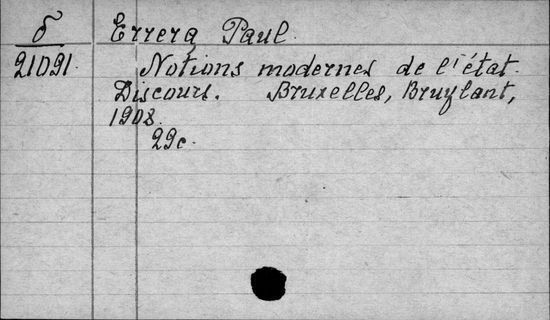 δ Errera Paul.
21091. Notions modernes de l'état.
Discours. Bruxelles, Bruylant,
1908.
29c.